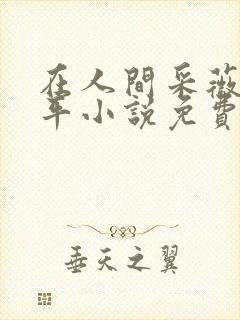 在人間采薇
年小説免費
垂天之翼